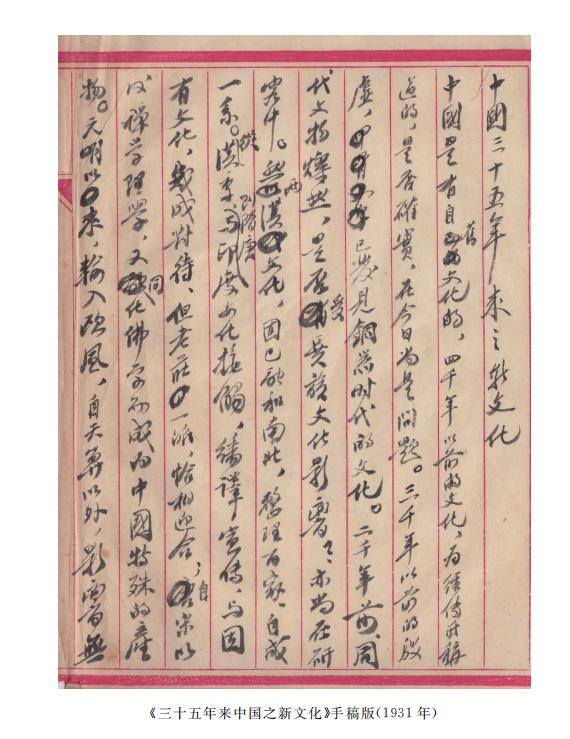 中國三十五年來之新文化
中國是有自舊文化的，四千年以前的文化，为經傳所稱
道的，是否確實，在今日尚是問題。三千年以前的殷
虛，已發見銅器时代的文化。二千年前，周
代文物燦然，是否受異族文化影響，亦尚在研
究中。兩漢文化，固已融和南北，整理百家，自成
一系。從漢季到隋唐与印度文化接觸，繙譯宣傳，与固
有文化，幾成對待，但老莊一派，恰相迎合；自宋以
後禅学理学，又同化佛学而成为中國特殊的產
物。元明以來，輸入欧風，自天算以外，影響無
《三十五年来中国之新文化》手稿版(1931 年)